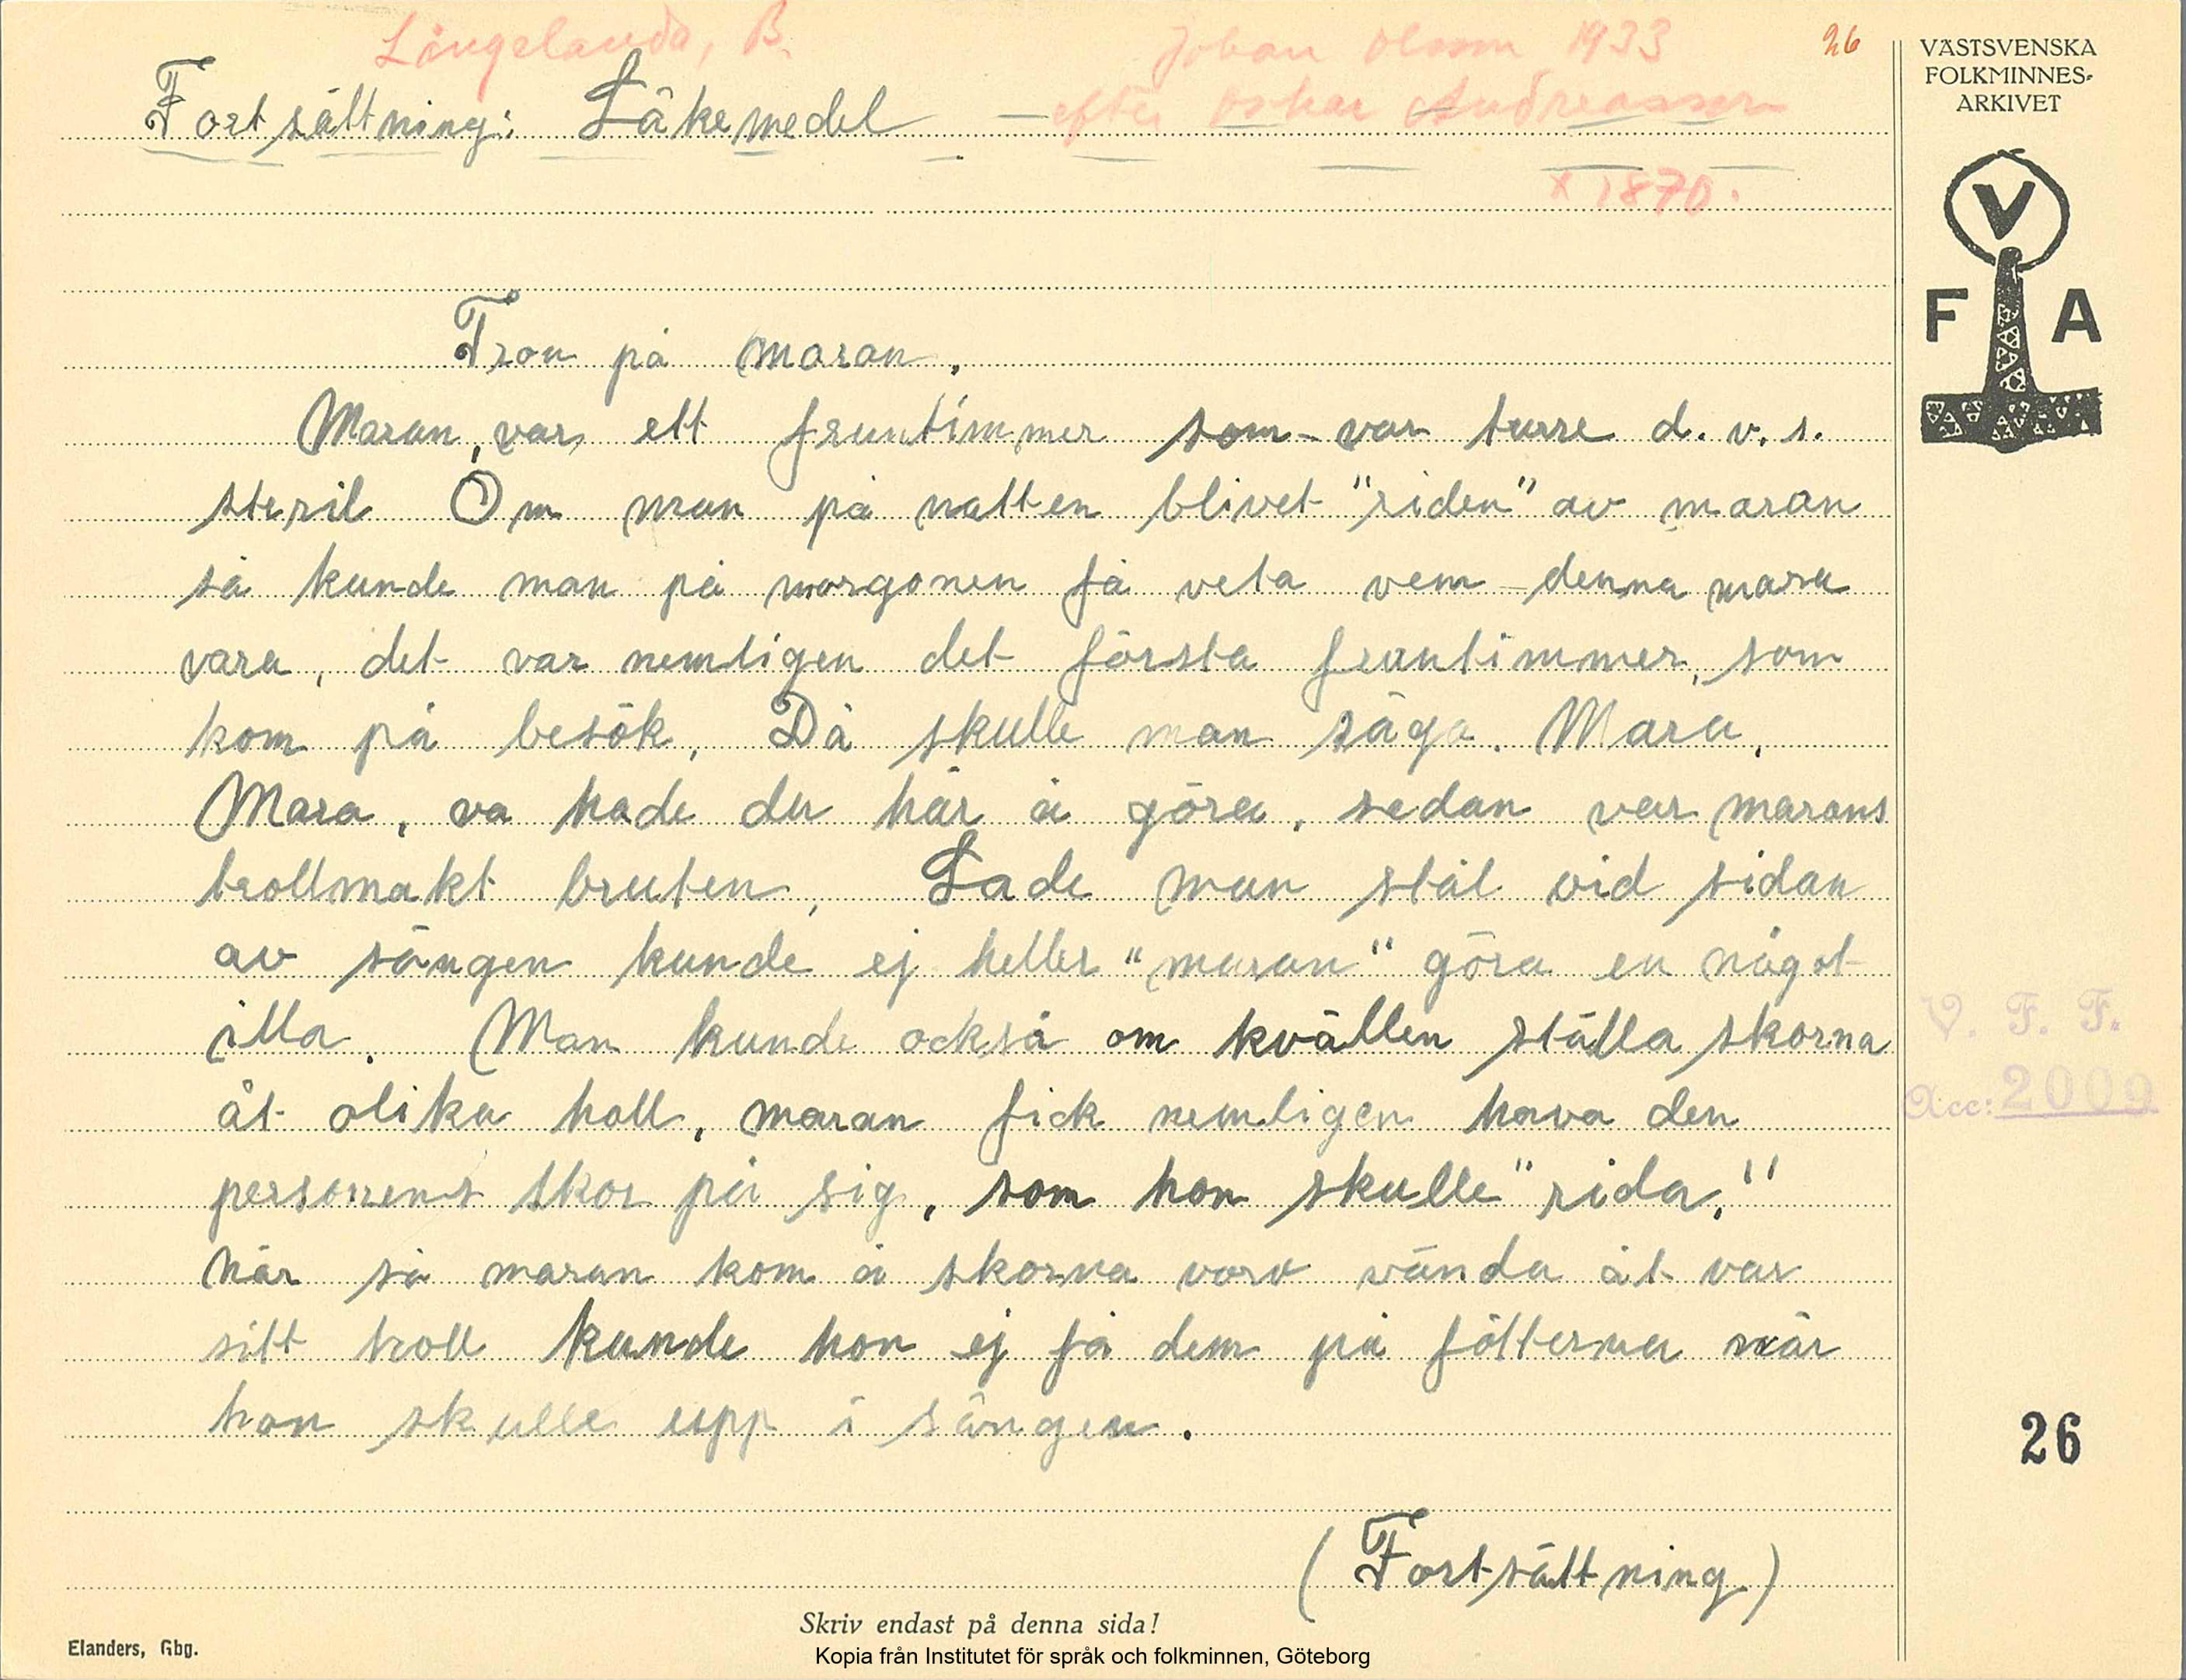 Långelanda, B.
Johan Olsson 1933
26
Fortsättning: Läkemedel
efter Oskar Andreasson
x 1870.
VÄSTSVENSKA
FOLKMINNES-
ARKIVET
V
F A
Tron på maran.
Maran, var ett fruntimmer som var turre d. v. s.
steril Om man på natten blivet "riden" av maran
så kunde man på morgonen få veta vem denna mara
vara, det var nemligen det första fruntimmer, som
kom på besök, Då skulle man säga. Mara,
Mara, va hade du här å göra, sedan var marans
trollmakt bruten, Lade man stål vid sidan
av sängen kunde ej heller "maran" göra en något
illa. Man kunde också om kvällen ställa skorna
åt olika holl, maran fick nemligen hava den
personens skor på sig, som hon skulle "rida,"
När så maran kom å skorna voro vända åt var
sitt holl kunde hon ej få dem på fötterna när
hon skulle upp i sängen.
V. F. F.
Acc: 2009
26
(Fortsättning)
Skriv endast på denna sida!
Elanders, Gbg.
Kopia från Institutet för språk och folkminnen, Göteborg